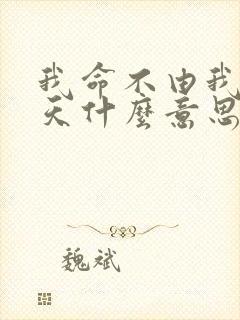 我命不由我
天什麼意思
魏斌